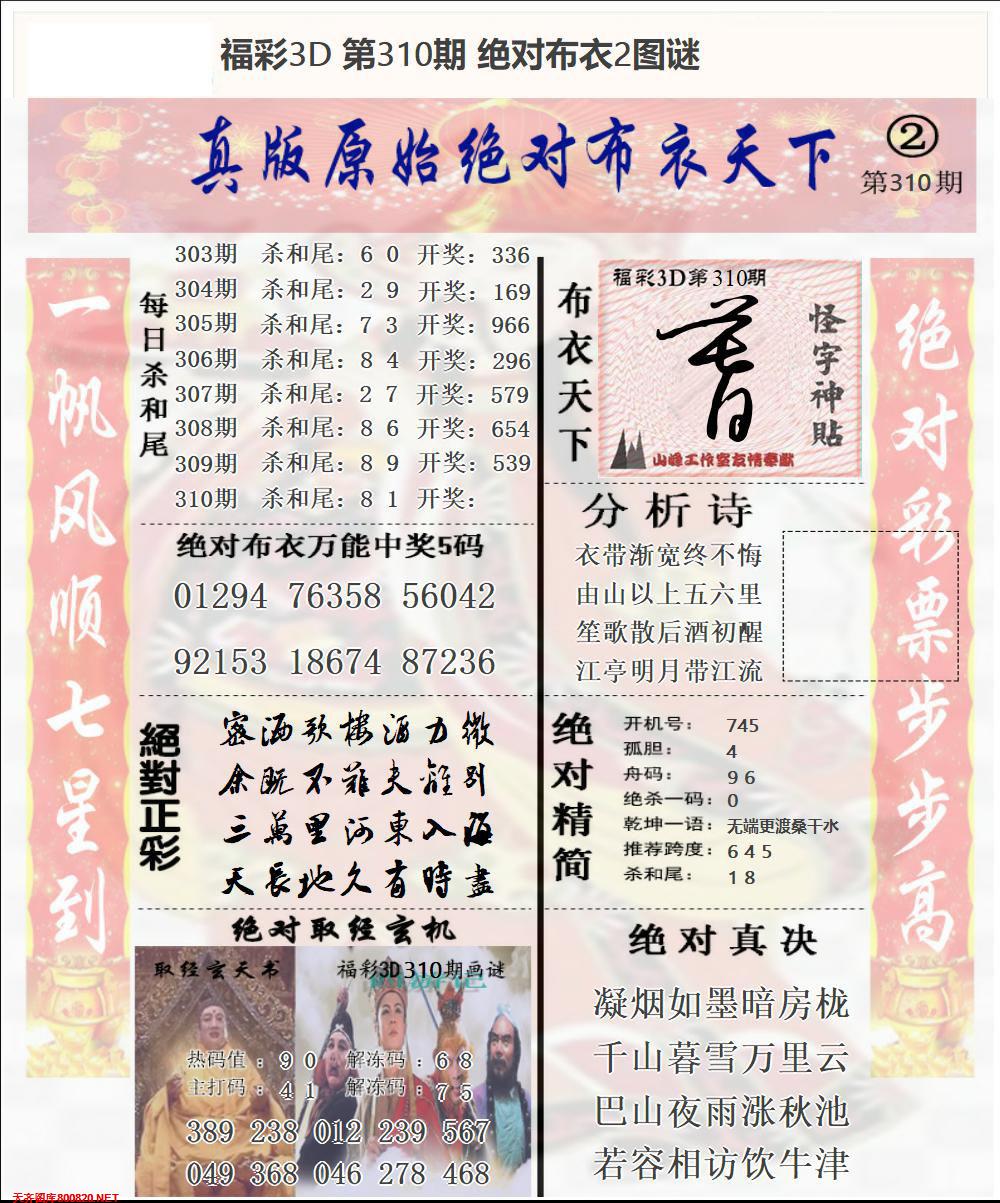 福彩3D 第310期 绝对布衣2图谜
真版原始绝对布衣天下
②
第310期
一帆风顺七星到
每日杀和尾
303期 杀和尾：6 0 开奖：336
304期 杀和尾：2 9 开奖：169
305期 杀和尾：7 3 开奖：966
306期 杀和尾：8 4 开奖：296
307期 杀和尾：2 7 开奖：579
308期 杀和尾：8 6 开奖：654
309期 杀和尾：8 9 开奖：539
310期 杀和尾：8 1 开奖：
绝对布衣万能中奖5码
01294 76358 56042
92153 18674 87236
絕對正彩
密洒歌樓酒力微
余既不難夫離别
三萬里河東入海
天長地久有時盡
绝对取经玄机
取经玄天书
福彩3D310期画谜
热码值：9 0 解冻码：6 8
主打码：4 1 解冻码：7 5
389 238 012 239 567
049 368 046 278 468
布衣天下
福彩3D第310期
怪字神貼
山峰工作室友情奉献
分析诗
衣带渐宽终不悔
由山以上五六里
笙歌散后酒初醒
江亭明月带江流
绝对精简
开机号：745
孤胆：4
舟码：9 6
绝杀一码：0
乾坤一语：无端更渡桑干水
推荐跨度：6 4 5
杀和尾：1 8
绝对真决
凝烟如墨暗房栊
千山暮雪万里云
巴山夜雨涨秋池
若容相访饮牛津
绝对彩票步步高
天齐图库800820.NET